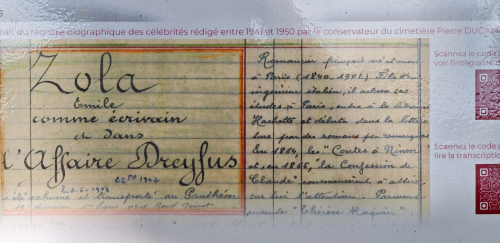 registre biographique des célébrités rédigé entre 1941 et 1950 par le conservateur du cimetière Pierre
Zola
Emile
comme écrivain
et dans
l'Affaire Dreyfus
été exhumé et transporté au Panthéon
Romancier français né et mort
à Paris (1840-1902) Fils d'un
ingénieur italien, il acheva ses
études à Paris, entra à la librairie
Hachette et débuta dans la
par des romans
En 1864, les "Contes à Ninon"
et, en 1865, "la Confession de
Claude" commencèrent à
sur lui l'attention.
"Thérèse Raquin"
Scannez le code
voir l'intégral
Scannez le code
lire la transcription